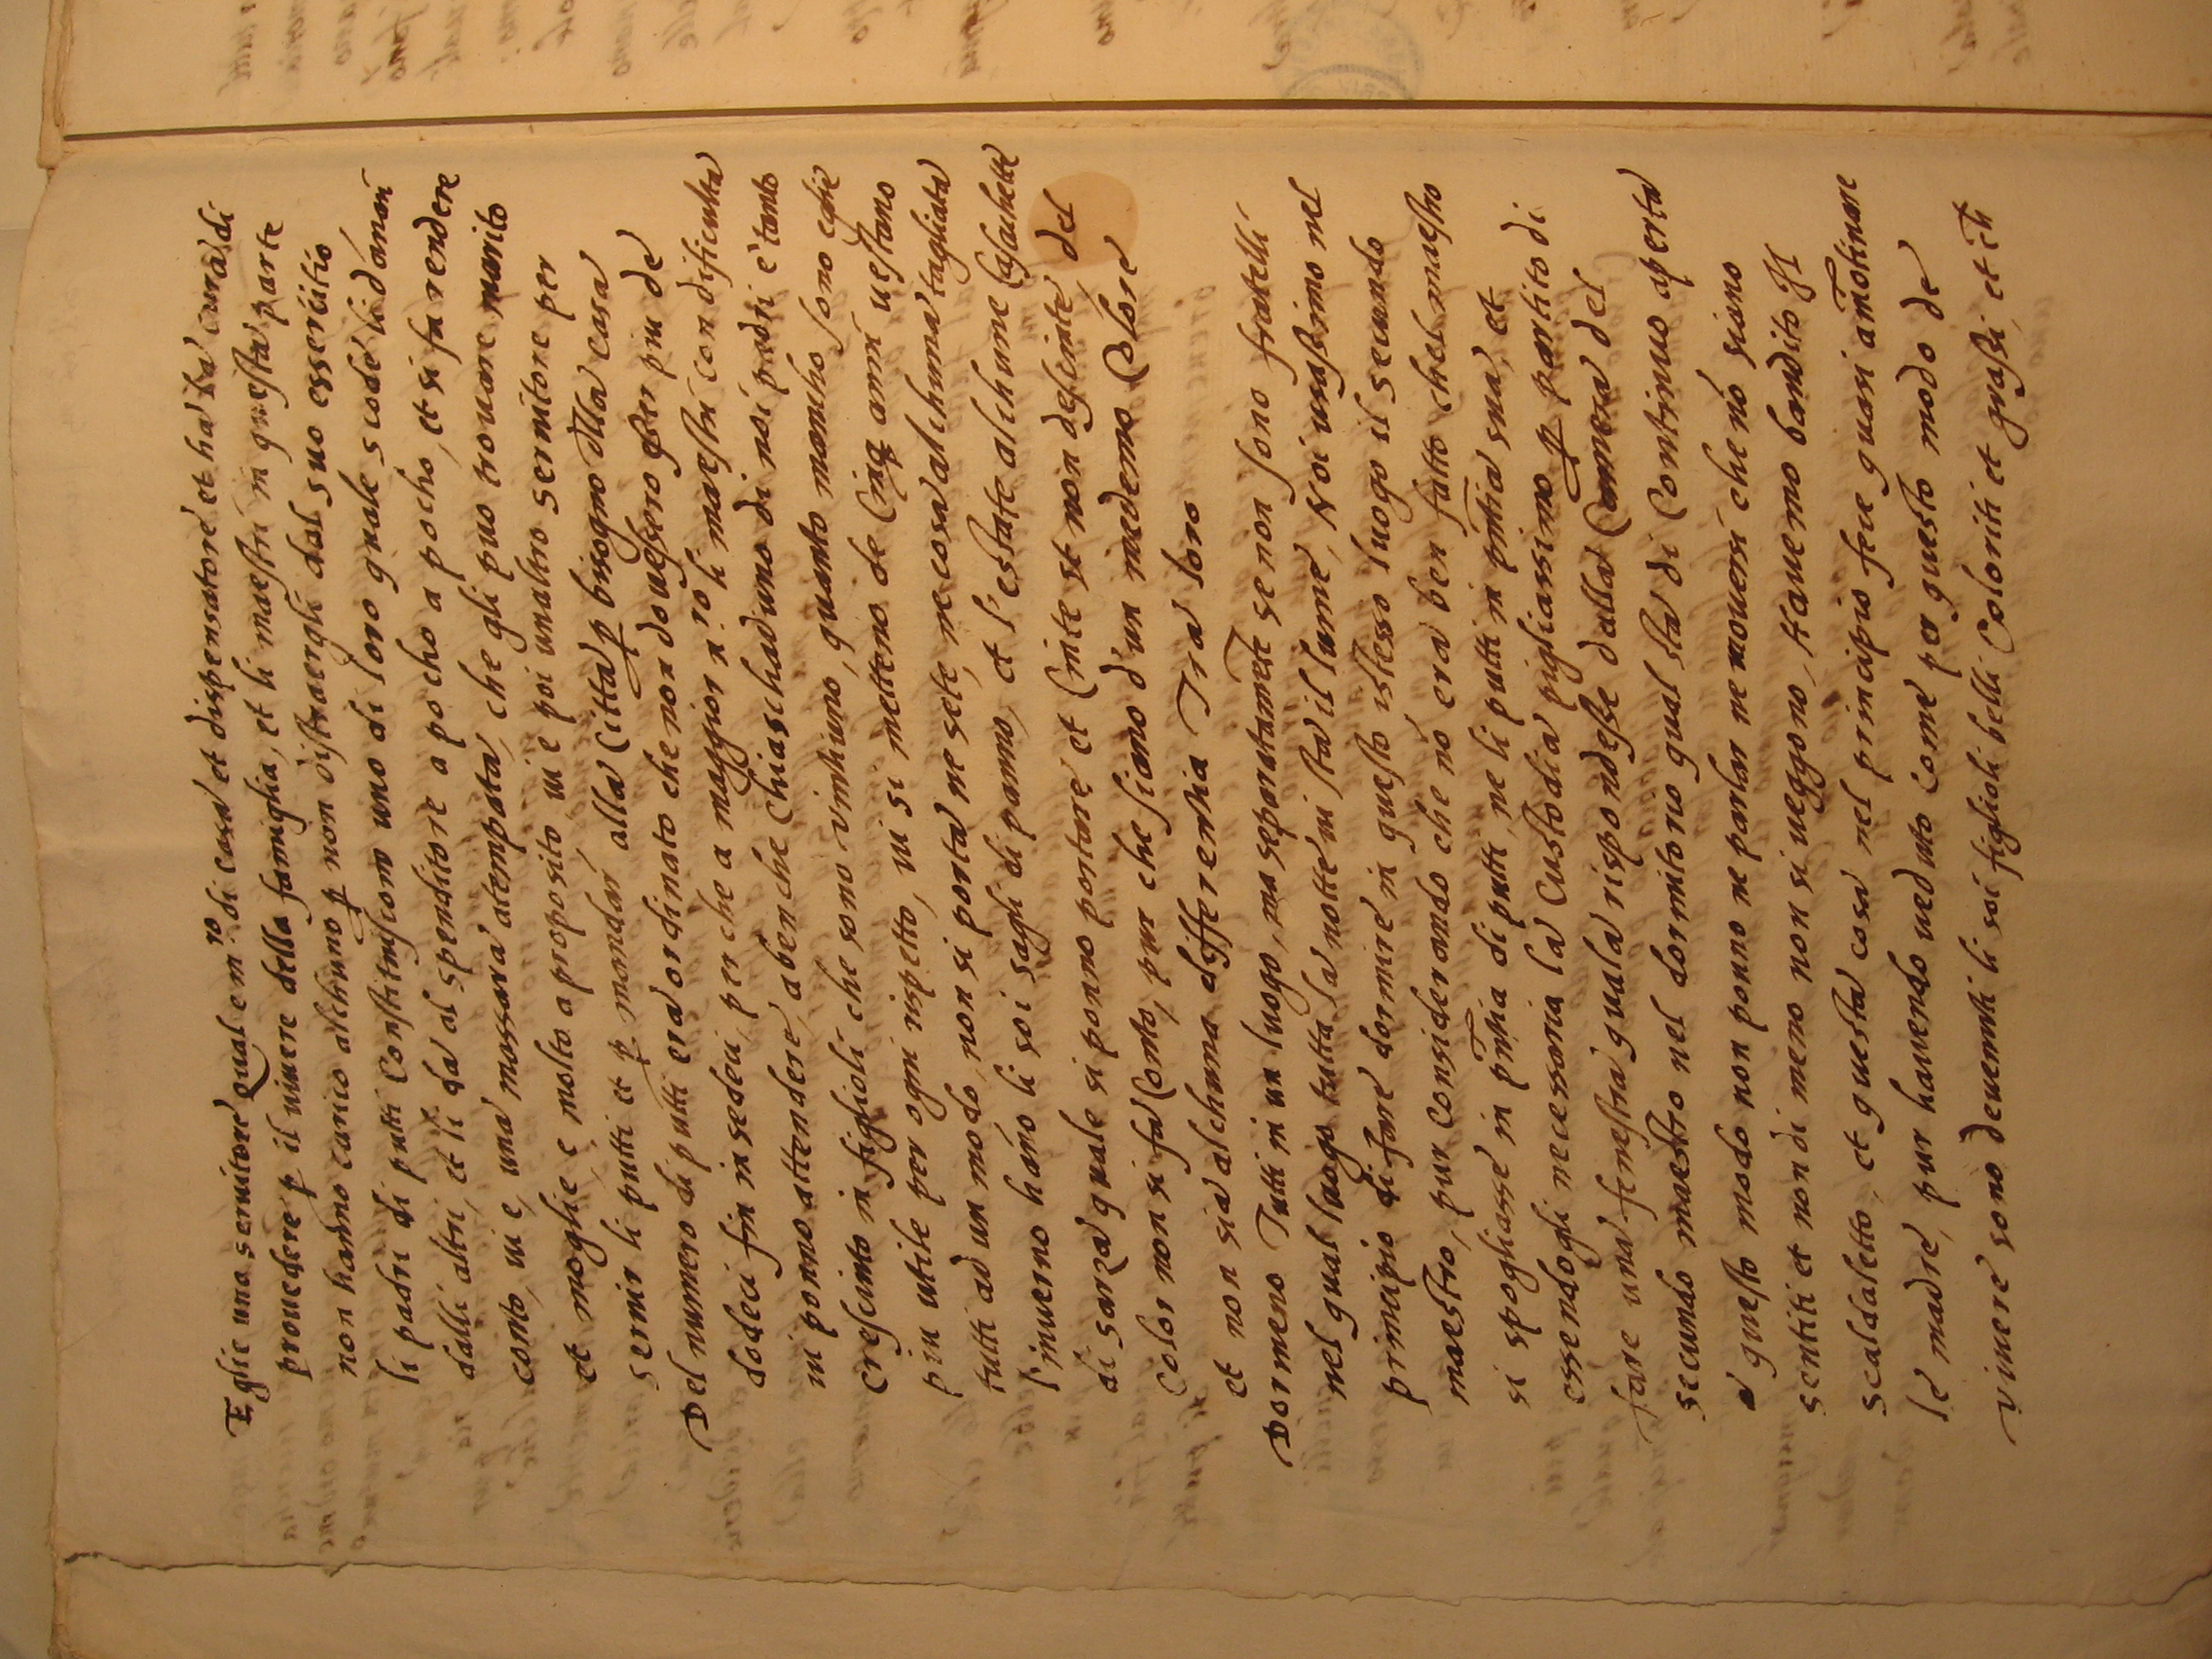 Eglie uno seruitore Qual e m.ro di casa et dispensatore et ha la cura di
prouedere p il uiuere della famiglia, et li maestri in questa parte
non hanno carico alchuno p non distraergli dal suo esserciito
li padri di putti Constituiscono uno di loro quale scode li danari
dalli altri, et li da al spenditore a pocho a pocho, et si fa rendere
conto, ui e, una massara atempata, che gli puo trouare marito
et moglie e molto a proposito, ui e poi unaltro seruitore per
seruir li putti et p mandar alla Citta p bisogno della casa
Del numero di putti era ordinato che non douessero esser piu de
dodeci fin in sedeci, per che a maggior n.ro li maestri con dificulta
ui ponno attendere, aben che Chiaschaduno di noi padri e tanto
cresciuto in figlioli che sono uinhiuno, quanto mancho sono
piu utile per ogni rispetto, ui si metteno de Cinq anni uestano
tutti ad un modo, non si porta ne sete, ne cosa alchuna tagliata
l'inuerno hano li soi sagli di panno, et l'estate alchune casachette
di sarza quale si ponno portare et Cinte et non descinte, del
color non si fa Conto, pur che siano d'un medemo Colore
et non sia alchuna differentia Tra loro
Dormeno Tutti in un luogo, ma separatamete se non sono fratelli
nel qual luogo tutta la notte ui sta il lume, Noi usassimo nel
principio di fare dormire in questo istesso luogo il secundo
maestro, pur considerando che no era ben fatto chel maestro
si spogliasse in pntia di putti, ne li putti in pntia sua, et
essendogli necessaria la Custodia pigliassimo p partito di
fare una fenestra quala rispondesse dalla Camera del
secundo maestro nel dormitorio qual sta di Continuo aperta
a questo modo non ponno ne parlar ne mouersi che no siano
sentiti et non di meno non si ueggono, Hauemo bandito Il
scaldaletto, et questa cosa nel principio fece quasi amotinare
le madre, pur hauendo ueduto come per questo modo de
uiuere sono deuenuti li soi figlioli belli Coloriti et grassi, et ch